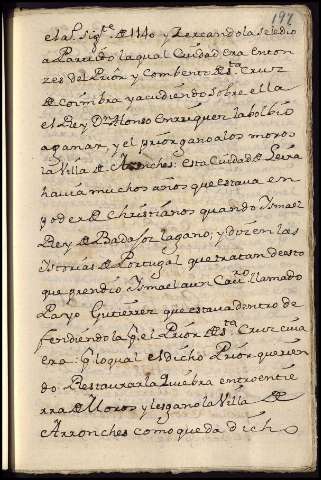 192
el a.º sig.te de 1140 y zercandola se le dio
a Partido la qual Ciudad era enton
zes del Prior y Combento de S.ta Cruz
de Coimbra y acudiendo sobre ella
el Rey D.n Alonso Enrriquez la bolbio
a ganar, y el prior gano a los moros
la Villa de Arronches: esta Ciudad de Leiria
havia muchos años que estava en
poder de Christianos quando Ysmael
Rey de Badajoz la gano; y dizen las
Ystorias de Portugal que tratan desto
que prendio Ysmael a un Cav.ro llamado
Payo Gutierrez que estava dentro de
fendiendola p.r el Prior de S.ta Cruz cuia
era: p.r lo qual el dicho Prior querien
do Restaurar la quiebra entro en tie
rra de Moros y les gano la Villa de
Arronches como queda dicho